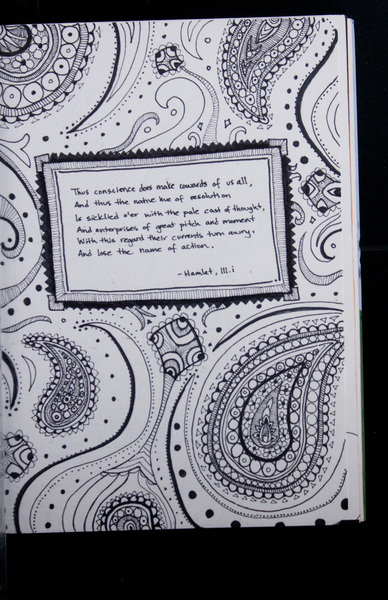 Thus conscience does make cowards of us all,
And thus the native hue of resolution
Is sicklied o'er with the pale cast of thought,
And enterprises of great pitch and moment
With this regard their currents turn awry,
And lose the name of action.
-Hamlet, III.i